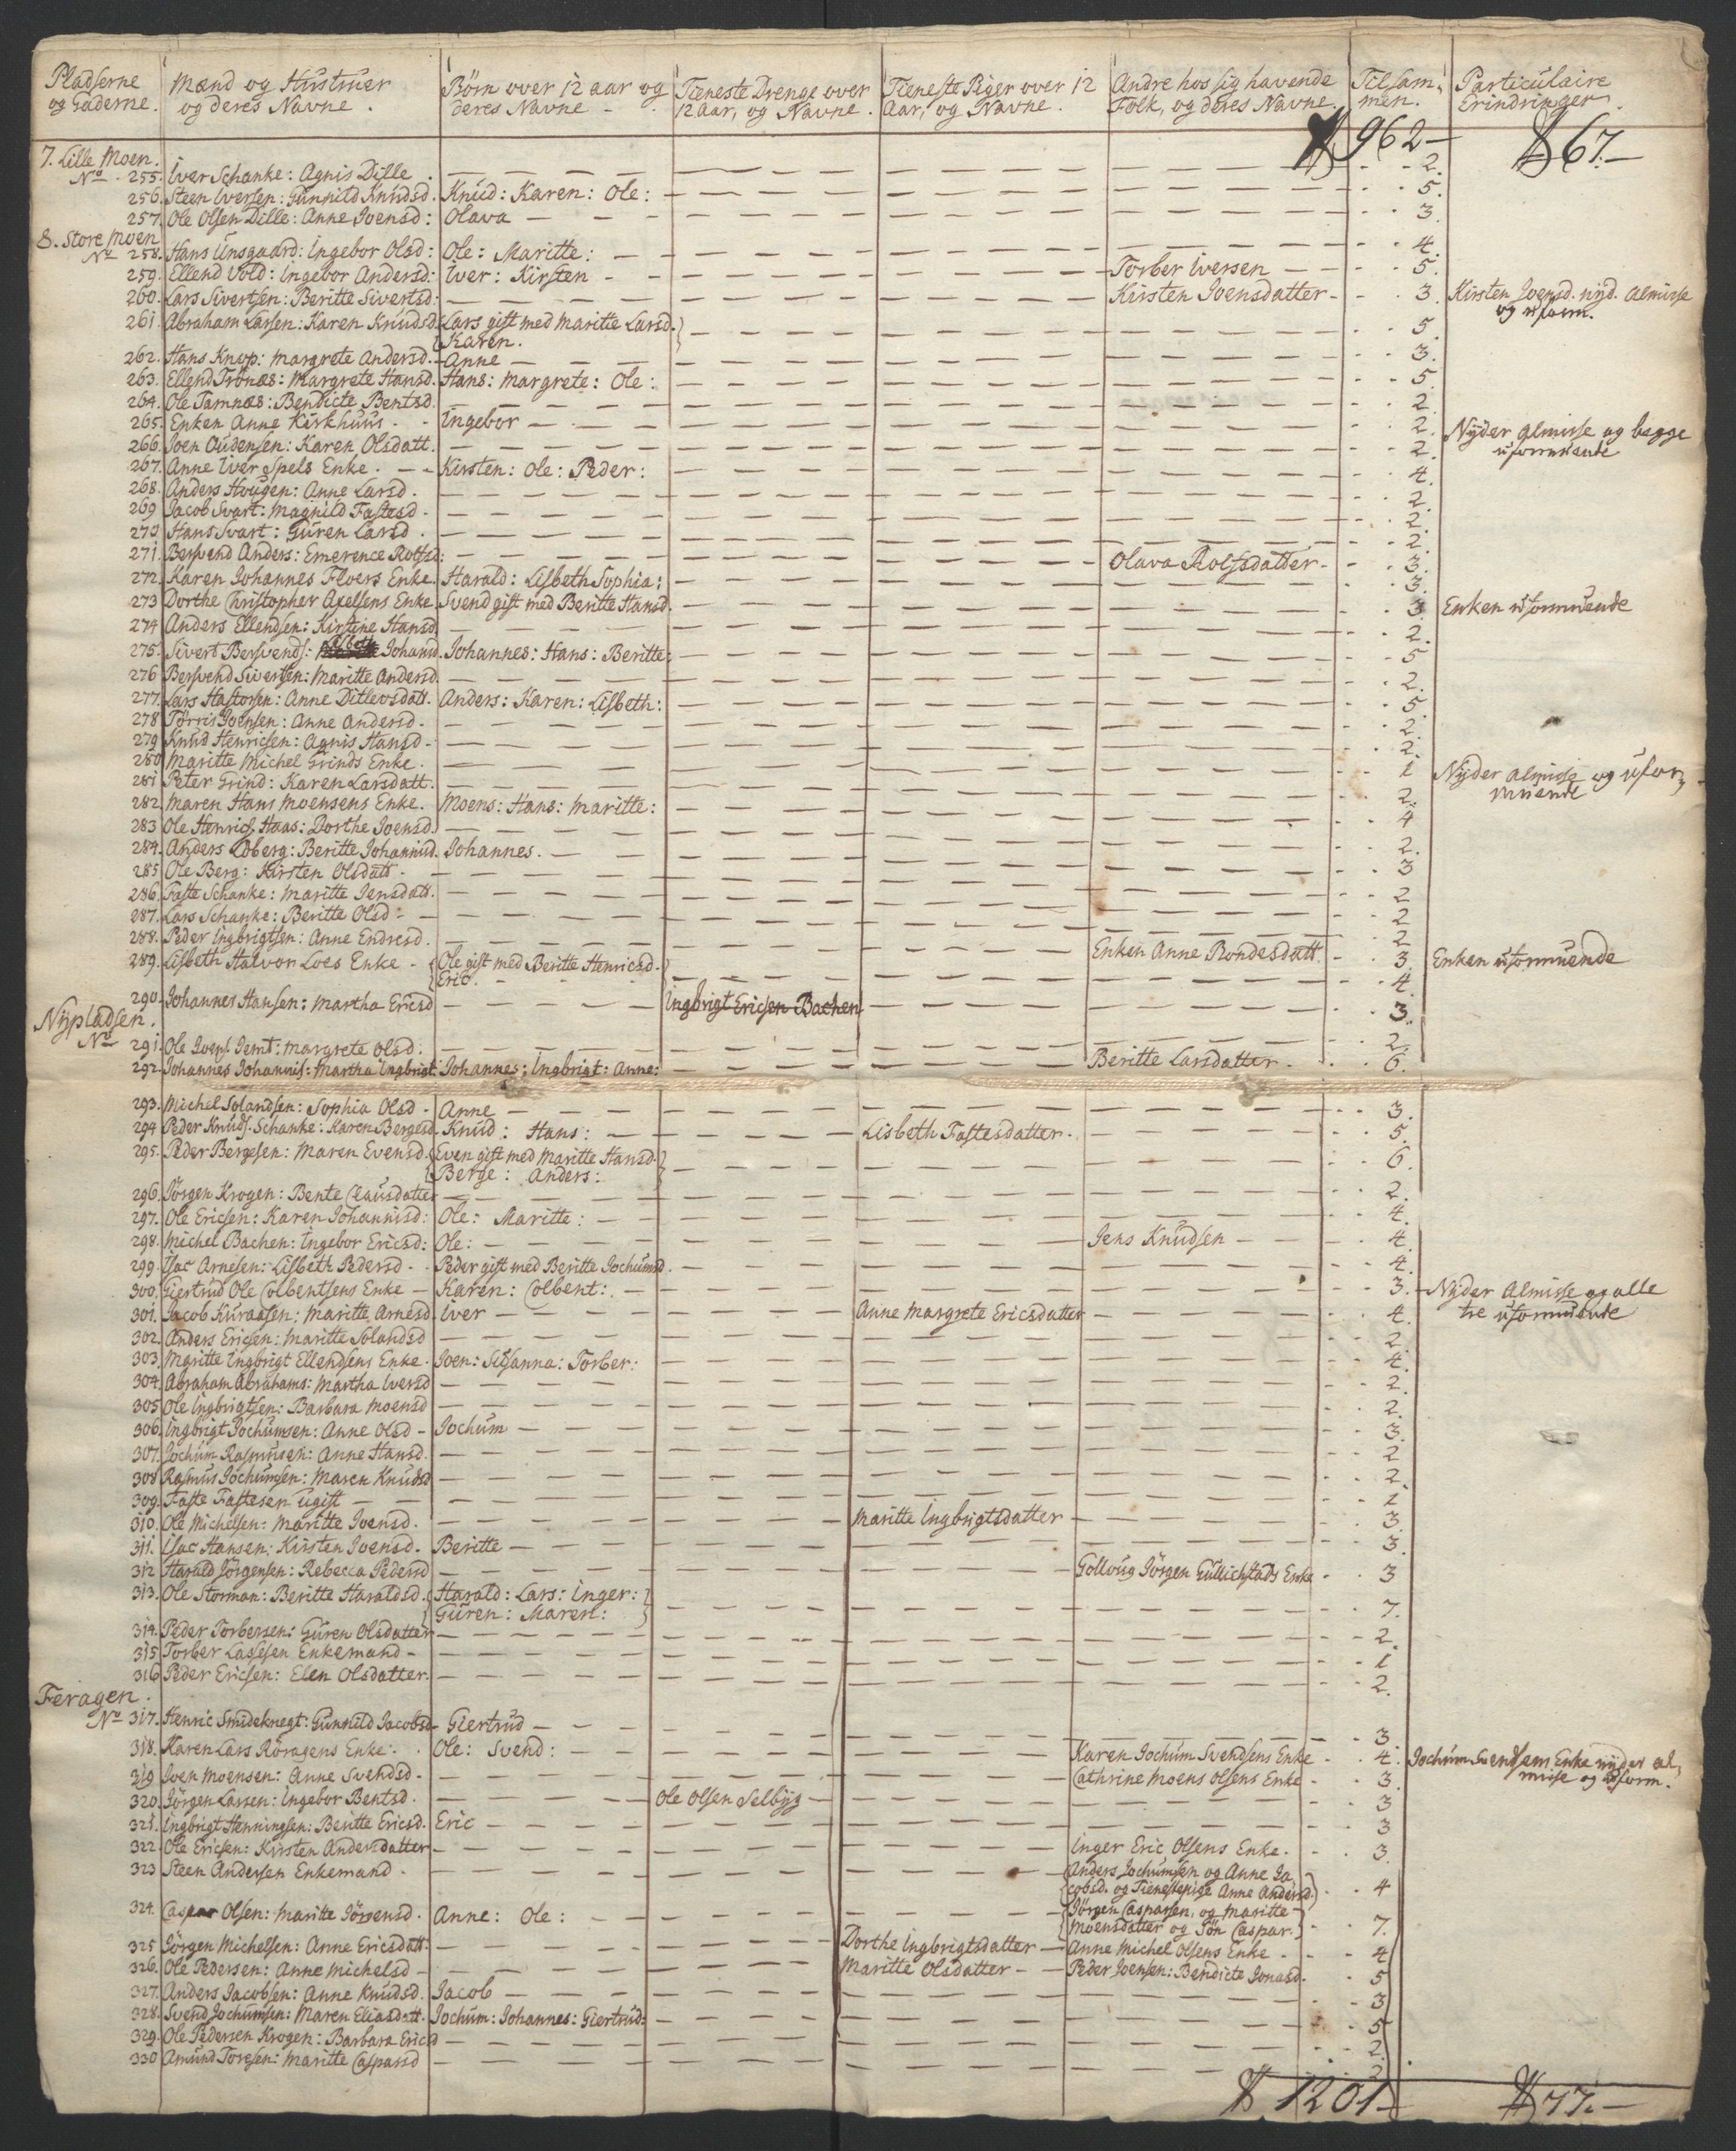 Pladserne og Gaderne. | Mænd og Hustruer og deres Navne. | Børn over 12 aar og deres Navne | Tieneste Drenge over 12 Aar, og Navne. | Tieneste Piger over 12 Aar, og Navne. | Andre hos sig havende Folk, og deres Navne. | Tilsammen. | Particulaire Erindringer.
962 — 67. —
7. Lille Moen.
No. 255. Iver Schanke: Agnis Dille — 2.
256. Steen Iversen: Gunnild Knudsd. Knud: Karen: Ole: 5.
257. Ole Olsen Dille: Anne Joensd: Olava — 3.
8. Store Moen
No. 258. Hans Unsgaard: Ingebor Olsd: Ole: Maritte: 4.
259. Ellend Vold: Ingebor Andersd: Iver: Kirsten — Torber Iversen — 5.
260. Lars Sivertsen: Beritte Sivertsd: — Kirsten Joensdatter — 3. Kirsten Joensd. nyd. Almisse
og uform.
261. Abraham Larsen: Karen Knudsd. Lars gift med Maritte Larsd.
Karen. 5.
262. Hans Knop: Margrete Andersd. Anne — 3.
263. Ellend Trönæs: Margrete Hansd. Hans: Margrete: Ole: 5.
264. Ole Tamnæs: Bendicte Bentsd. 2.
265. Enken Anne Kirkhuus. Ingebor — 2. Nyder Almisse og begge
uformuende
266. Joen Oudensen: Karen Olsdatt. 2.
267. Anne Iver Spels Enke. Kirsten: Ole: Peder: 4.
268. Anders Hougen: Anne Larsd. 2.
269 Jacob Svart: Magnild Fastesd. 2.
270 Hans Svart: Guren Larsd. 2.
271. Bersvend Anders: Emerence Rolfsd: — Olava Rolfsdatter — 3.
272. Karen Johannes Floers Enke. Harald: Lisbeth Sophia: 3.
273 Dorthe Christopher Axelsens Enke. Svend gift med Beritte Hansd. 3. Enken uformuende
274 Anders Ellendsen: Kirstine Hansd. 2.
275. Sivert Bersvends: Lisbeth Johansd. Johannes: Hans: Beritte: 5
276 Bersvend Sivertsen: Maritte Andersd. 2.
277. Lars Hastorsen: Anne Ditlevsdatt. Anders: Karen: Lisbeth: 5
278 Törris Joensen: Anne Andersd. 2.
279 Knud Henricsen: Agnis Hansd. 2.
280 Maritte Michel Grinds Enke. 1 Nyder Almisse og ufor-
muende
281 Peter Grind: Karen Larsdatt. 2.
282. Maren Hans Moensens Enke. Moens: Hans: Maritte: 4
283 Ole Henrics. Haas: Dorthe Joensd. 2.
284. Anders Loberg: Beritte Johannisd. Johannes. 3
285 Ole Berg: Kirsten Olsdatt. 2
286. Faste Schanke: Maritte Jensdatt. 2
287. Lars Schanke: Beritte Olsd. 2
288. Peder Ingbrigtsen: Anne Endresd. — Enken Anne Rondesdatt. 3. Enken uformuende
289. Lisbeth Halvor Loes Enke. Ole gift med Beritte Henricsd.
Eric. 4.
290. Johannes Hansen: Martha Ericsd — Ingbrigt Ericsen Bachen — 3.
Nypladsen.
No. 291. Ole Joens. Jemt: Margrete Olsd. 2.
292. Johannes Johannis: Martha Ingbrigt. Johannes: Ingbrigt: Anne: Beritte Larsdatter. 6.
293. Michel Solandsen: Sophia Olsd. Anne — 3.
294 Peder Knuds. Schanke: Karen Bergesd. Knud: Hans: Lisbeth Fastesdatter. 5.
295. Peder Bergesen: Maren Evensd. Even gift med Maritte Hansd.
Berge: Anders: 6.
296. Jörgen Krogen: Bente Clausdatter 2.
297. Ole Ericsen: Karen Johannisd: Ole: Maritte: 4.
298. Michel Bachen: Ingebor Ericsd: Ole: — Jens Knudsen — 4.
299. Isac Arnesen: Lisbeth Pedersd. Peder gift med Beritte Jochumsd. 4.
300. Giertrud Ole Colbentsens Enke — Karen: Colbent: 3. Nyder Almisse og alle
tre uformuende
301. Jacob Kuraasen: Maritte Arnesd. Iver — Anne Margrete Ericsdatter 4.
302. Anders Ericsen: Maritte Solandsd 2.
303. Maritte Ingbrigt Ellendsens Enke. Joen: Susanna: Torber: 4.
304. Abraham Abrahams: Martha Iversd 2.
305 Ole Ingbrigtsen: Barbara Moensd 2.
306. Ingbrigt Jochumsen: Anne Olsd — Jochum — 3.
307. Jochum Rasmusen: Anne Hansd. 2
308 Rasmus Jochumsen: Maren Knudsd 2.
309. Faste Fastesen ugift 1
310. Ole Michelsen: Maritte Joensd. — Maritte Ingbrigtsdatter — 3.
311. Isac Hansen: Kirsten Joensd. Beritte — 3.
312 Harald Jörgensen: Rebecca Pedersd — Gollvug Jörgen Gullichstads Enke — 3
313. Ole Storman: Beritte Haraldsd. Harald: Lars: Inger:
Guren: Maren: 7.
314. Peder Torbersen: Guren Olsdatter 2.
315 Torber Lassesen Enkemand — 1
316 Peder Ericsen: Elen Olsdatter. 2.
Feragen.
No. 317. Henric Smideknegt: Gunnild Jacobsd. Giertrud — 3.
318. Karen Lars Röragens Enke. Ole: Svend: Karen Jochum Svendsens Enke — 4. Jochum Svendsens Enke nyder al-
misse og uform.
319 Joen Moensen: Anne Svendsd. — Cathrine Moens Olsens Enke — 3.
320. Jörgen Larsen: Ingebor Bentsd. — Ole Olsen Selbyg — 3
321. Ingbrigt Henningsen: Beritte Ericsd. Eric — 3
322 Ole Ericsen: Kirsten Andersdatter — Inger Eric Olsens Enke. 3.
323 Steen Andersen Enkemand. — Anders Jochumsen og Anne Ja-
cobsd. og Tienestepige Anne Andersd. 4
324. Caspar Olsen: Maritte Jörgensd. Anne: Ole: Jörgen Casparsen, og Maritte
Moensdatter og Sön Caspar. 7.
325 Jörgen Michelsen: Anne Ericsdatt. — Dorthe Ingbrigtsdatter — Anne Michel Olsens Enke. 4
326. Ole Pedersen: Anne Michelsd — Maritte Olsdatter — Peder Joensen: Bendicte Jonasd. 5
327. Anders Jacobsen: Anne Knudsd. Jacob — 3
328. Svend Jochumsen: Maren Eliasdatt. Jochum: Johannes: Giertrud: 5
329. Ole Pedersen Krogen: Barbara Ericsd 2.
330 Amund Toresen: Maritte Casparsd 2
1201 — 77. —